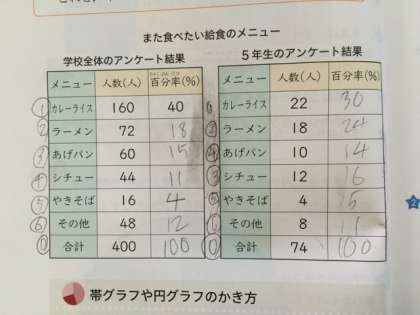 また食べたい給食のメニュー
学校全体のアンケート結果
メニュー 人数(人) 百分率(%)
① カレーライス 160 40
② ラーメン 72 18
③ あげパン 60 15
④ シチュー 44 11
⑤ やきそば 16 4
⑥ その他 48 12
⓪ 合計 400 100
5年生のアンケート結果
メニュー 人数(人) 百分率(%)
カレーライス 22 30
② ラーメン 18 24
④ あげパン 10 14
③ シチュー 12 16
⑤ やきそば 4 5
⑥ その他 8 11
⓪ 合計 74 100
2
帯グラフや円グラフのかき方